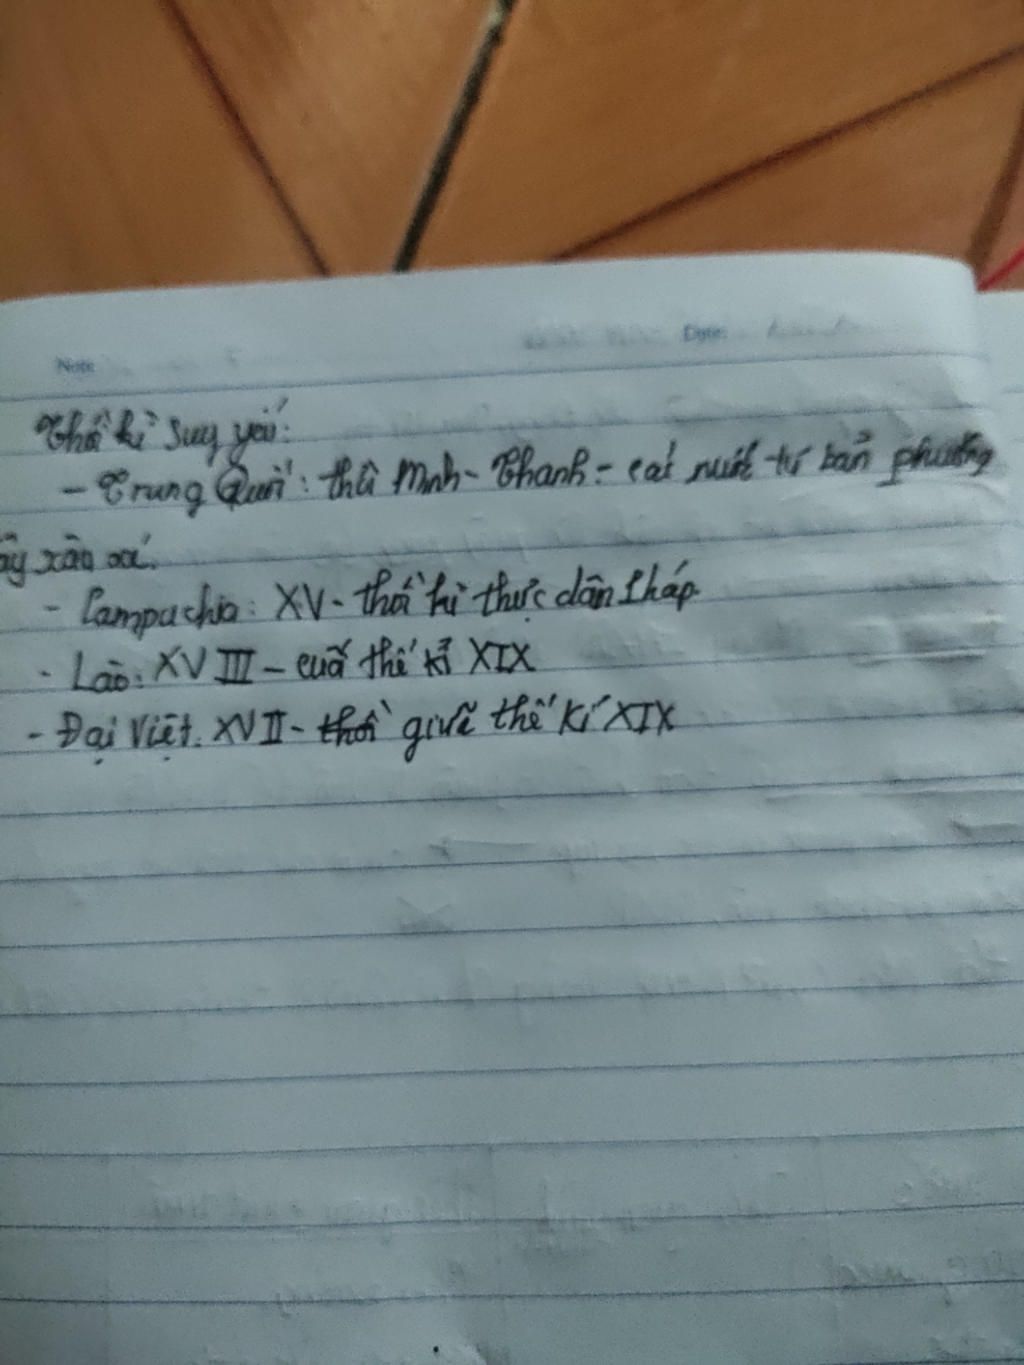 Note
Date:
Thời kì suy yếu:
- Trung Quốc: thời Minh - Thanh - các nước tư bản phương
ây xâm
- Campuchia: XV - thời kì thực dân Pháp
- Lào: XVIII - cuối thế kỉ XIX
- Đại Việt: XVII - thời giữa thế kỉ XIX